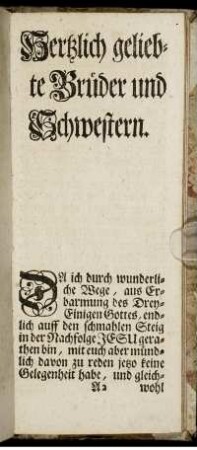 Hertzlich gelieb-
te Brüder und
Schwestern.
DA ich durch wunderli-
che Wege, aus Er-
barmung des Drey-
Einigen Gottes, end-
lich auff den schmahlen Steig
in der Nachfolge JESU gera-
then bin, mit euch aber münd-
lich davon zu reden jetzo keine
Gelegenheit habe, und gleich-
A2 wohl